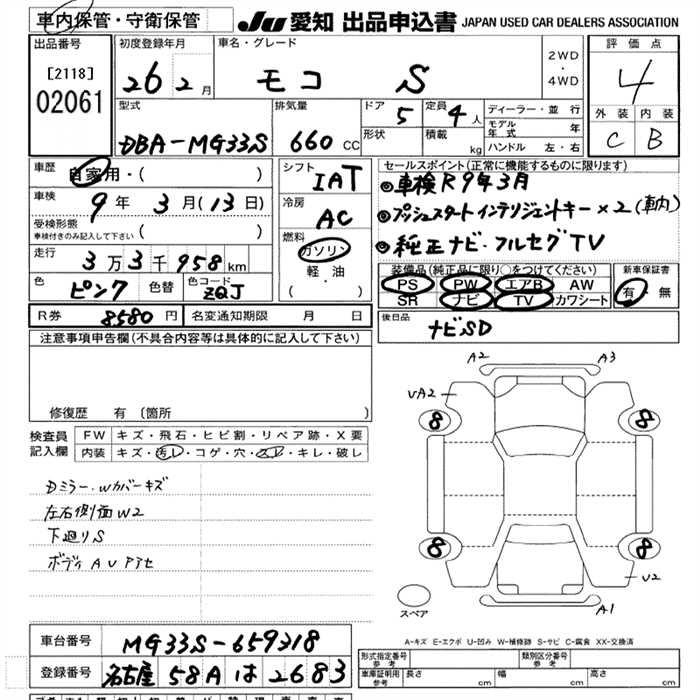 車内保管・守衛保管 JU 愛知 出品申込書 JAPAN USED CAR DEALERS ASSOCIATION
出品番号 [2118] 02061
初度登録年月 26 2月
車名・グレード モコ S 2WD・4WD
評価点 4
外装 C 内装 B
型式 DBA-MG33S
排気量 660 CC
ドア 5 定員 4人
形状 積載 kg
ディーラー・並行
モデル年式 年
ハンドル 左・右
車歴 自家用・( )
車検 9年3月(13日)
受検形態 車検付きのみ記入して下さい ( )
走行 3万3千958km
色 ピンク 色替 色コード ZQJ
シフト IAT
冷房 AC
燃料 ガソリン 軽・油 ( )
セールスポイント(正常に機能するものに限ります)
◎車検R9年3月
◎プッシュスタートインテリジェントキー×2(車内)
◎純正ナビ・フルセグTV
装備品(純正品に限り○をつけてください) 新車保証書
PS PW エアB AW 有・無
SR ナビ TV カワシート
R券 8580円 名変通知期限 月 日
後日品 ナビSD
注意事項申告欄(不具合内容等は具体的に記入して下さい)
修復歴 有(箇所 )
検査員記入欄 FW キズ・飛石・ヒビ割・リペア跡・X要
内装 キズ・汚レ・コゲ・穴・スレ・キレ・破レ
Dミラー・Wカバーキズ
左右側面W2
下廻りS
ボディAUアセ
A2 A3
UA2
8 8
8 8
U2
A1
スペア
A-キズ E-エクボ U-凹み W-補修跡 S-サビ C-腐食 XX-交換済
車台番号 MG33S-659318
登録番号 名古屋 58A は 2683
形式指定番号 参考 類別区分番号 参考
車庫証明用 参考 長さ 幅 高さ